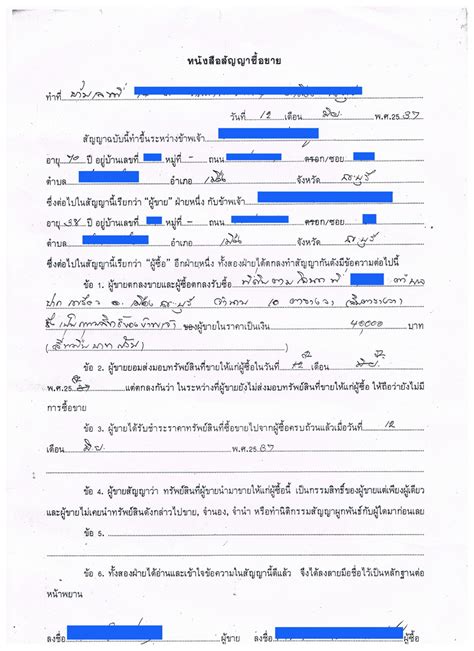 หนังสือสัญญาซื้อขาย
ทำที่
วันที่ 12 เดือน มิย. พ.ศ.25 37
สัญญาฉบับนี้ทำขึ้นระหว่างข้าพเจ้า
อายุ 40 ปี อยู่บ้านเลขที่ หมู่ที่ - ถนน ตรอก/ซอย
ตำบล อำเภอ เมือง จังหวัด
ซึ่งต่อไปในสัญญานี้เรียกว่า "ผู้ขาย" ฝ่ายหนึ่ง กับข้าพเจ้า
อายุ 38 ปี อยู่บ้านเลขที่ หมู่ที่ - ถนน ตรอก/ซอย
ตำบล อำเภอ เมือง จังหวัด
ซึ่งต่อไปในสัญญานี้เรียกว่า "ผู้ซื้อ" อีกฝ่ายหนึ่ง ทั้งสองฝ่ายได้ตกลงทำสัญญากันดังมีข้อความต่อไปนี้
ข้อ 1. ผู้ขายตกลงขายและผู้ซื้อตกลงรับซื้อ
อ. เมือง จำนวน 10 ตารางวา
ของผู้ขายในราคาเป็นเงิน 40,000 บาท
(สี่หมื่นบาทถ้วน)
ข้อ 2. ผู้ขายยอมส่งมอบทรัพย์สินที่ขายให้แก่ผู้ซื้อในวันที่ 12 เดือน มิย.
พ.ศ.25 37 แต่ตกลงกันว่า ในระหว่างที่ผู้ขายยังไม่ส่งมอบทรัพย์สินที่ขายให้แก่ผู้ซื้อ ให้ถือว่ายังไม่มี
การซื้อขาย
ข้อ 3. ผู้ขายได้รับชำระราคาทรัพย์สินที่ซื้อขายไปจากผู้ซื้อครบถ้วนแล้วเมื่อวันที่ 12
เดือน มิย. พ.ศ.25 37
ข้อ 4. ผู้ขายสัญญาว่า ทรัพย์สินที่ผู้ขายนำมาขายให้แก่ผู้ซื้อนี้ เป็นกรรมสิทธิ์ของผู้ขายแต่เพียงผู้เดียว
และผู้ขายไม่เคยนำทรัพย์สินดังกล่าวไปขาย, จำนอง, จำนำ หรือทำนิติกรรมสัญญาผูกพันกับผู้ใดมาก่อนเลย
ข้อ 5.
ข้อ 6. ทั้งสองฝ่ายได้อ่านและเข้าใจข้อความในสัญญานี้ดีแล้ว จึงได้ลงลายมือชื่อไว้เป็นหลักฐานต่อ
หน้าพยาน
ลงชื่อ ผู้ขาย ลงชื่อ ผู้ซื้อ